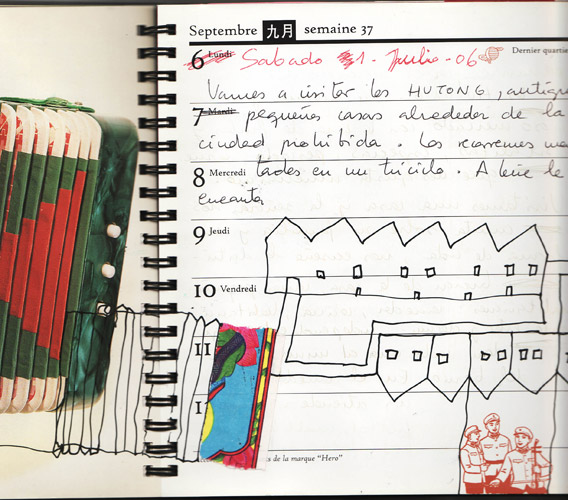 Septembre 九月 semaine 37
6 Lundi Sabado 1. Julio - 06 Dernier quartie
Vamos a visitar los HUTONG, antigu
7 Mardi pequeñas casas alrededor de la
ciudad prohibida. Los recorremos
8 Mercredi tados en un triciclo. A le
encanta
9 Jeudi
10 Vendredi
11
1
s de la marque "Hero"